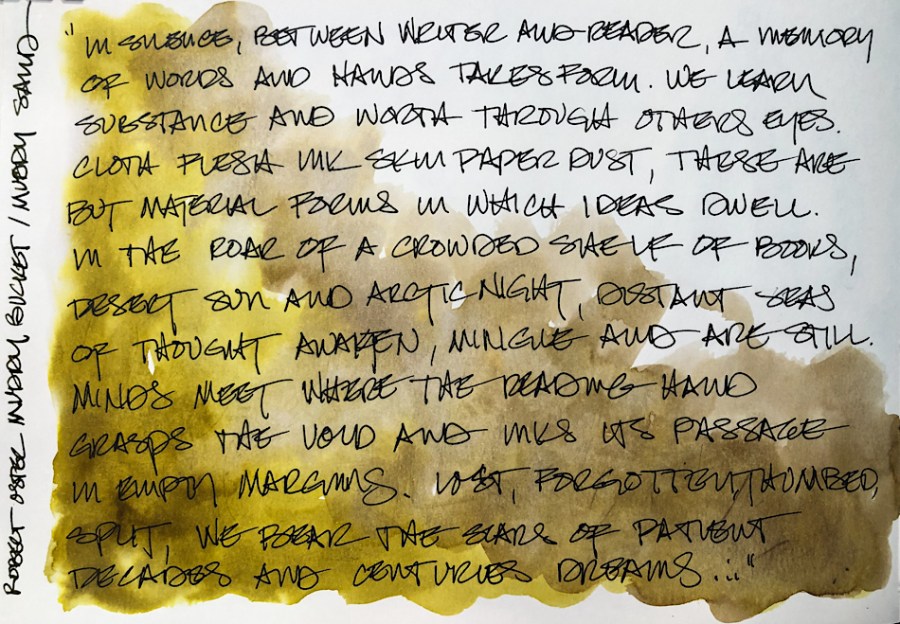 "IN SILENCE, BETWEEN WRITER AND READER, A MEMORY
OF WORDS AND HANDS TAKES FORM. WE LEARN
SUBSTANCE AND WORTH THROUGH OTHERS EYES.
CLOTH FLESH INK SKIN PAPER DUST, THESE ARE
BUT MATERIAL FORMS IN WHICH IDEAS DWELL.
IN THE ROAR OF A CROWDED SHELF OF BOOKS,
DESERT SUN AND ARCTIC NIGHT, DISTANT SEAS
OF THOUGHT AWAKEN, MINGLE AND ARE STILL.
MINDS MEET WHERE THE READING HAND
GRASPS THE VOID AND INKS ITS PASSAGE
IN EMPTY MARGINS. LOST, FORGOTTEN, THUMBED,
SPLIT, WE BEAR THE SCARS OF PATIENT
DECADES AND CENTURIES DREAMS..."
ROBERT OSTER MUDDY BUCKET / MURRAY SAND